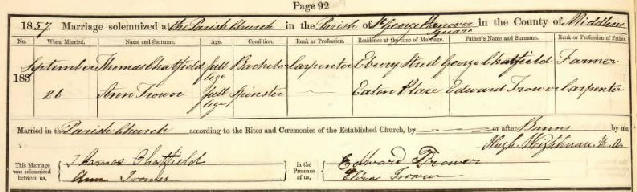 Page 92
1857. Marriage solemnized at the Parish Church in the Parish of St George Hanover Square in the County of Middlesex
No. When Married. Name and Surname. Age. Condition. Rank or Profession. Residence at the time of Marriage. Father's Name and Surname. Rank or Profession of Father.
183 September Thomas Chatfield full age Bachelor Carpenter Ebury Street George Chatfield Farmer
26 Ann Trower full age Spinster Eaton Place Edward Trower Carpenter
Married in the Parish Church according to the Rites and Ceremonies of the Established Church, by or after Banns by me,
This Marriage was solemnized between us, Thomas Chatfield In the Presence of us, Edward Trower
Ann Trower Trower